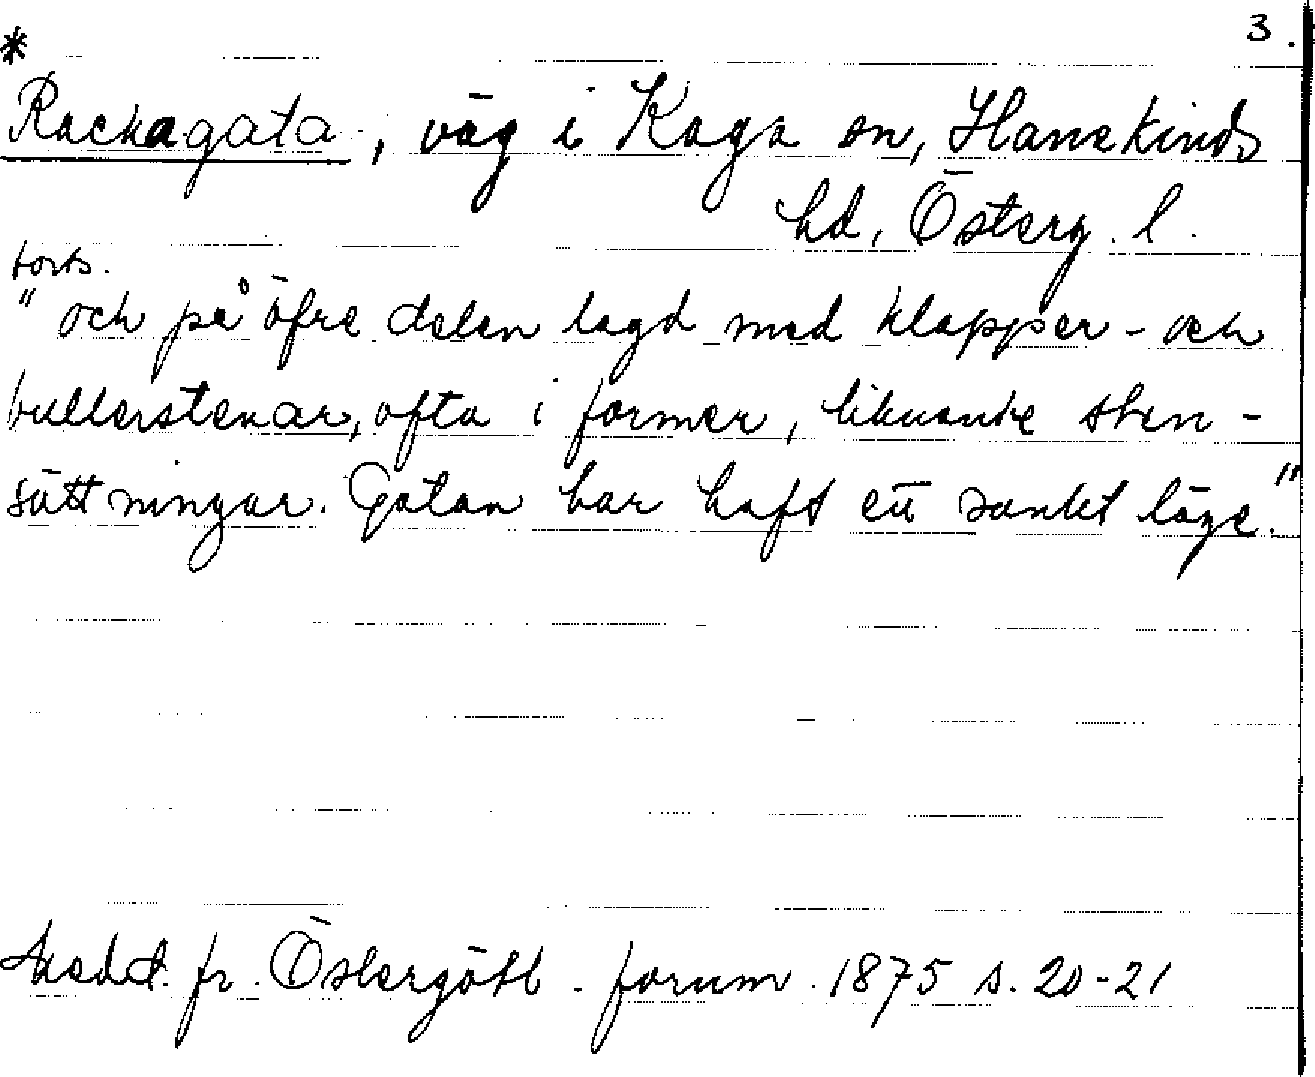 3.
*
Rackagata, väg i Kaga sn, Hanekinds
hd, Österg. l.
forts.
"och på öfre delen lagd med klapper- och
bullerstenar, ofta i former, liknande sten-
sättningar. Gatan har haft ett sankt läge."
Medd. fr. Östergötl. fornm. 1875 s. 20-21